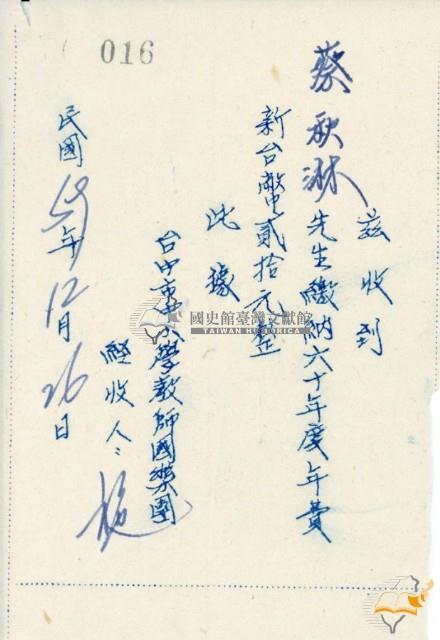 016
茲收到
蔡秋淋先生繳納六十年度年費
新台幣貳拾元整
此據
台中市中小學教師國樂團
經收人：
民國59年12月26日
國史館臺灣文獻館
TAIWAN HISTORICA